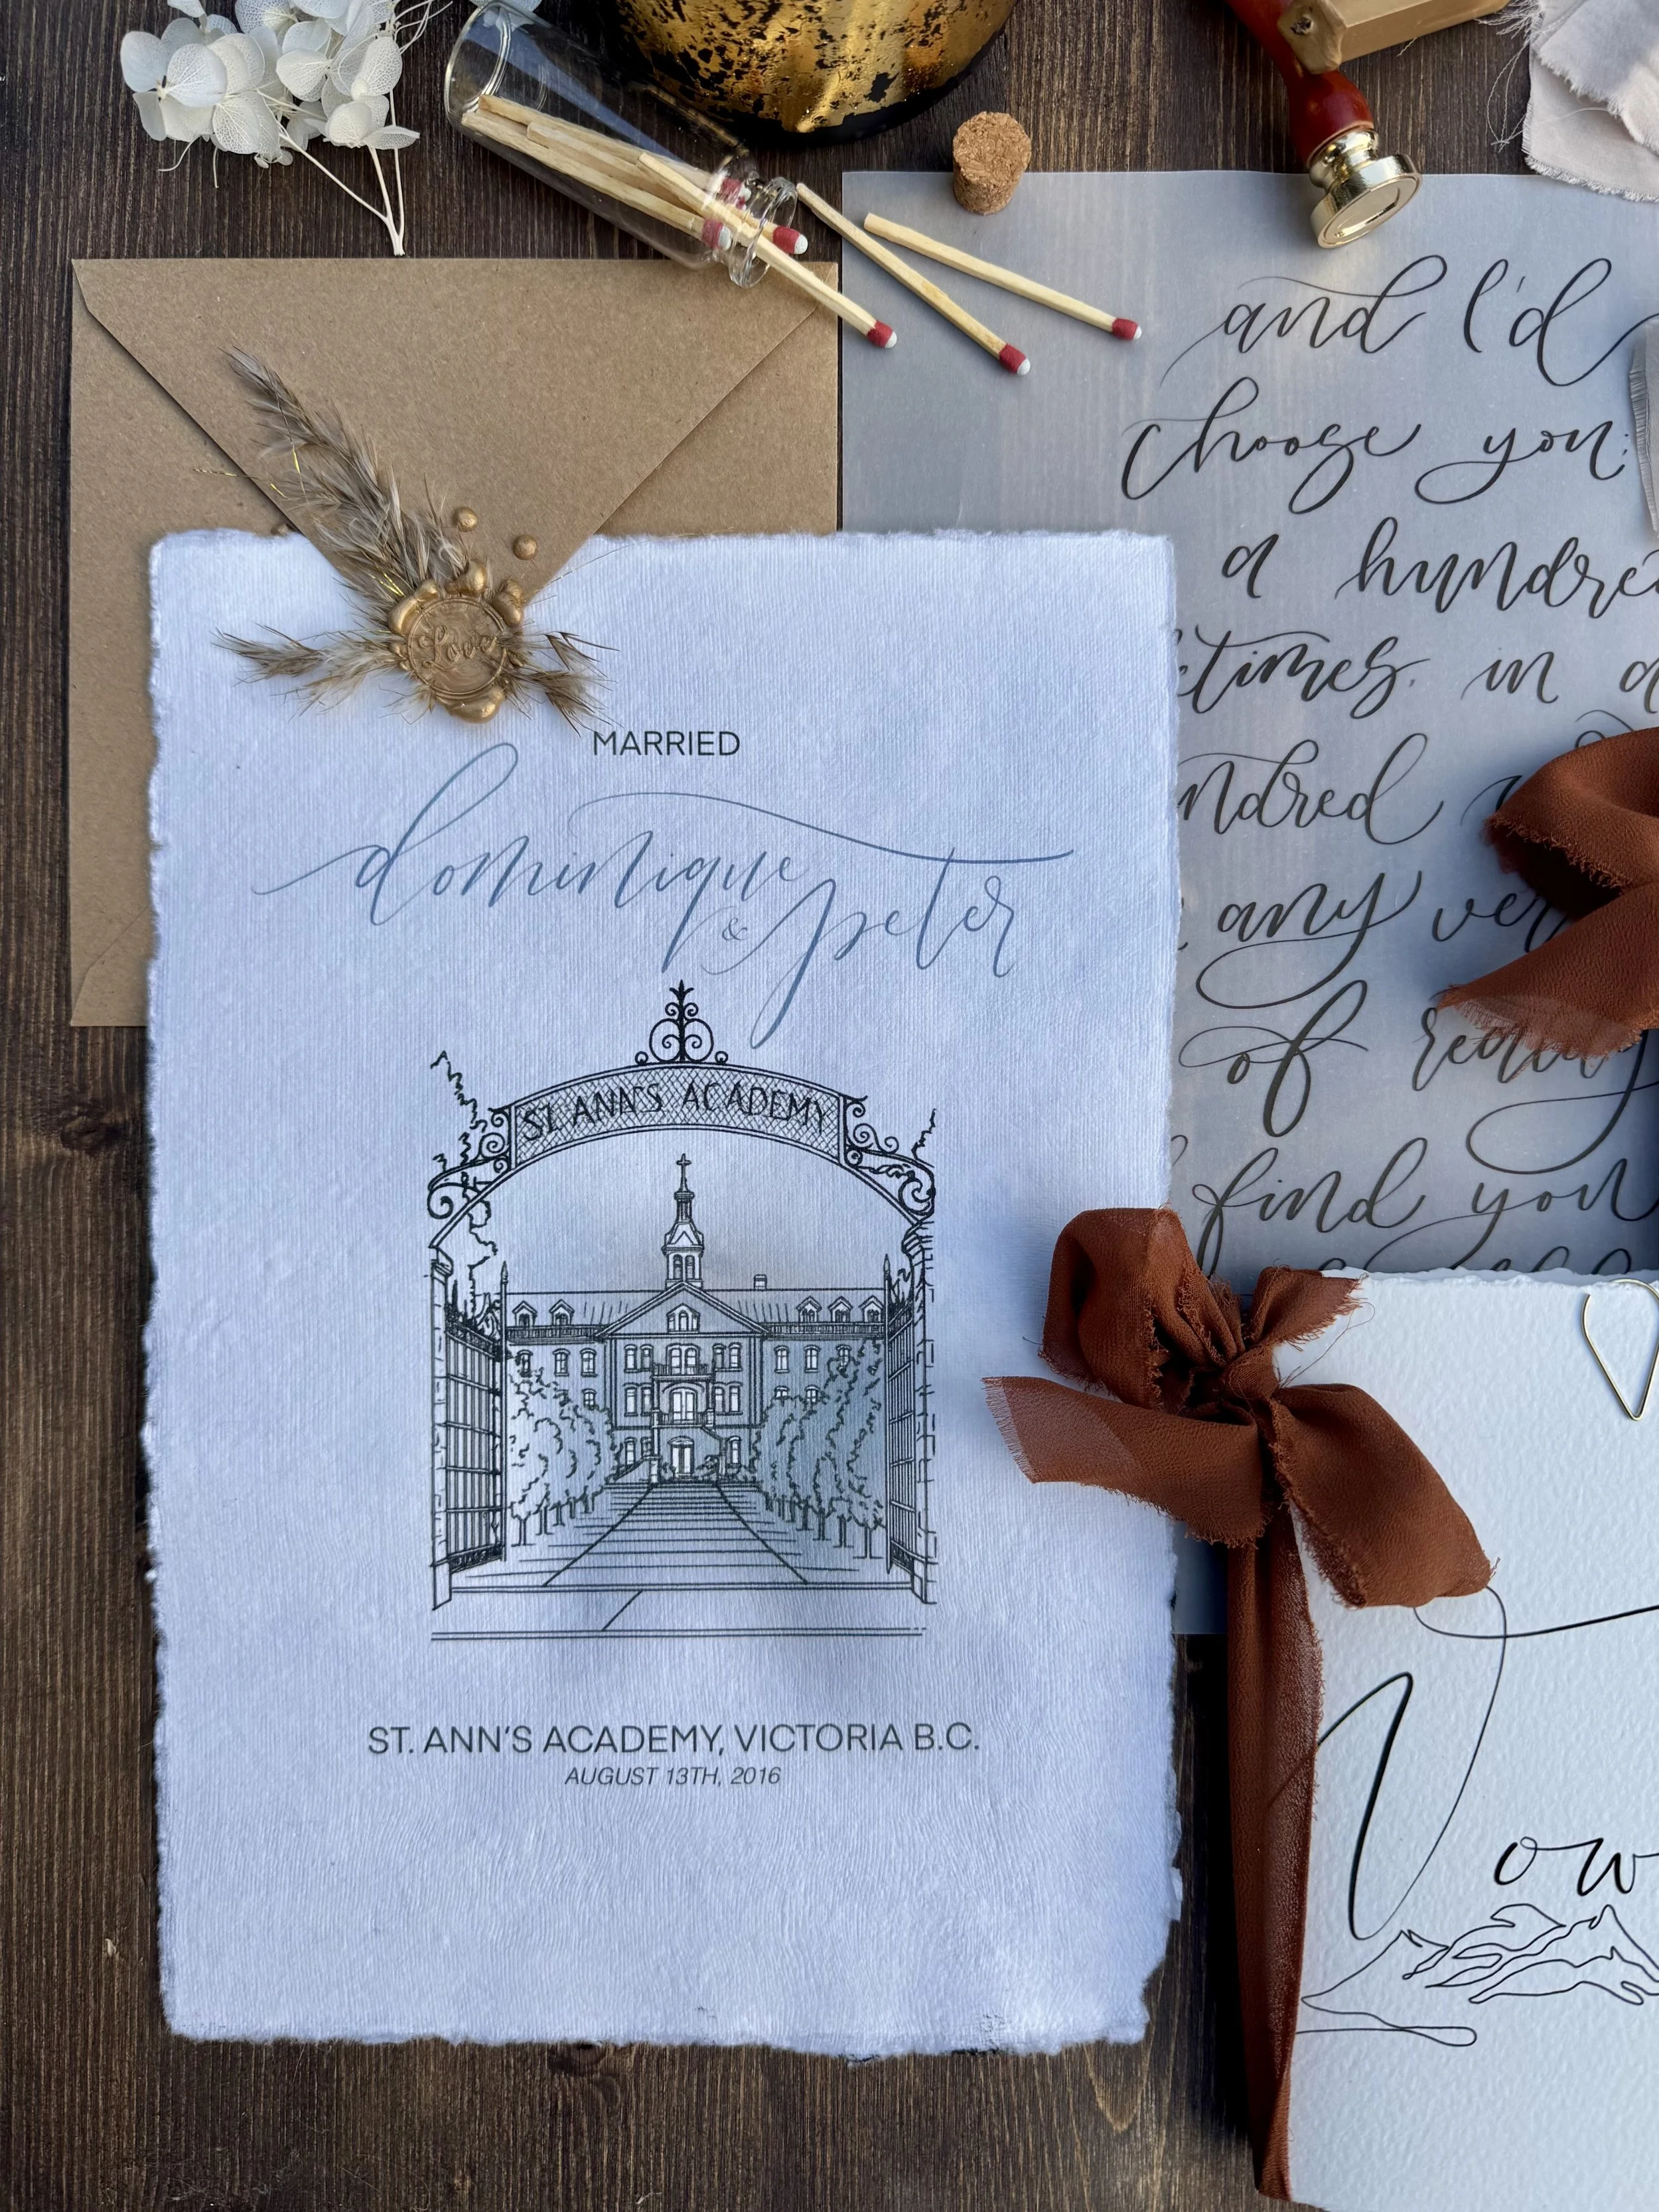 Love
MARRIED
dominique
& peter
ST. ANN'S ACADEMY
ST. ANN'S ACADEMY, VICTORIA B.C.
AUGUST 13TH, 2016
and I'd
choose you;
a hundred
times. in a
hundred
any
of reality
find you
Vow